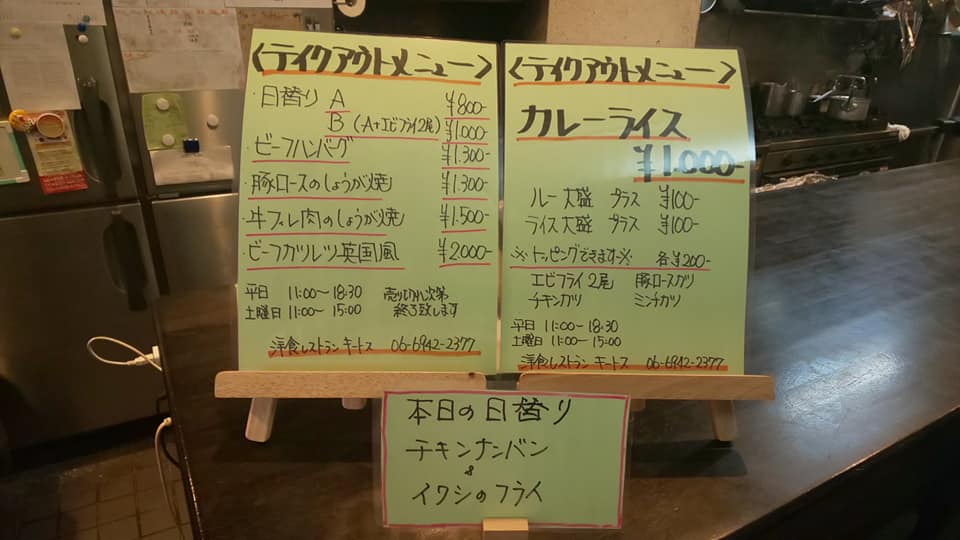 〈テイクアウトメニュー〉
・日替り A ¥800-
B (A+エビフライ2尾) ¥1,000-
・ビーフハンバーグ ¥1,300-
・豚ロースのしょうが焼 ¥1,300-
・牛フィレ肉のしょうが焼 ¥1,500-
・ビーフカツレツ英国風 ¥2,000-
平日 11:00〜18:30 売り切れ次第
土曜日 11:00〜15:00 終了致します
洋食レストラン キートス 06-6942-2377
〈テイクアウトメニュー〉
カレーライス
¥1,000-
ルー大盛 プラス ¥100-
ライス大盛 プラス ¥100-
※トッピングできます※ 各¥200-
エビフライ2尾 豚ロースカツ
チキンカツ ミンチカツ
平日 11:00〜18:30
土曜日 11:00〜15:00
洋食レストラン キートス 06-6942-2377
本日の日替り
チキンナンバン
&
イワシのフライ